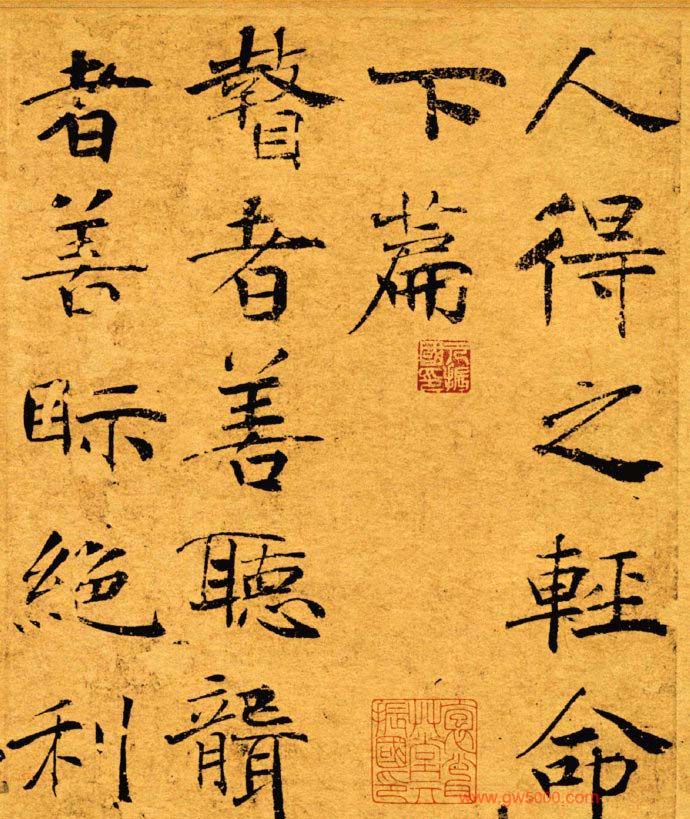 人得之輕命
下篇
瞽者善聽聾
者善眎絶利
www.gw5000.com